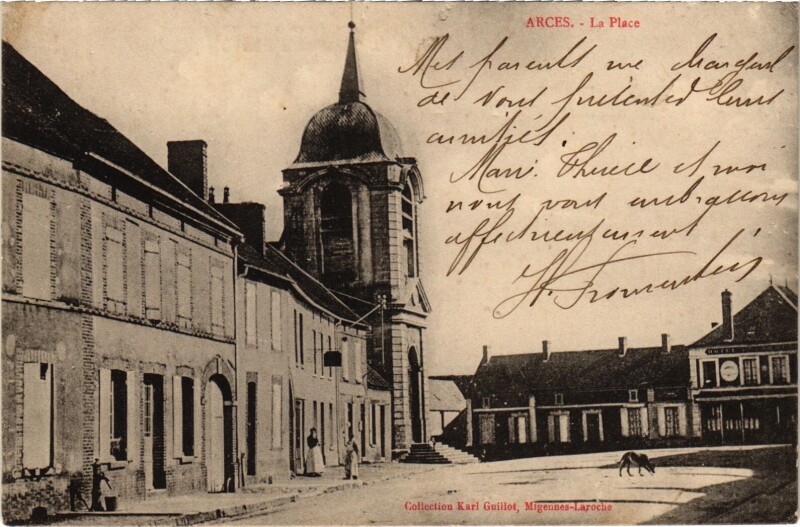 ARCES. - La Place
Mes parents me chargent
de vous présenter leurs
amitiés.
Marie Thérèse et moi
nous vous embrassons
affectueusement
Collection Karl Guillot, Migennes-Laroche